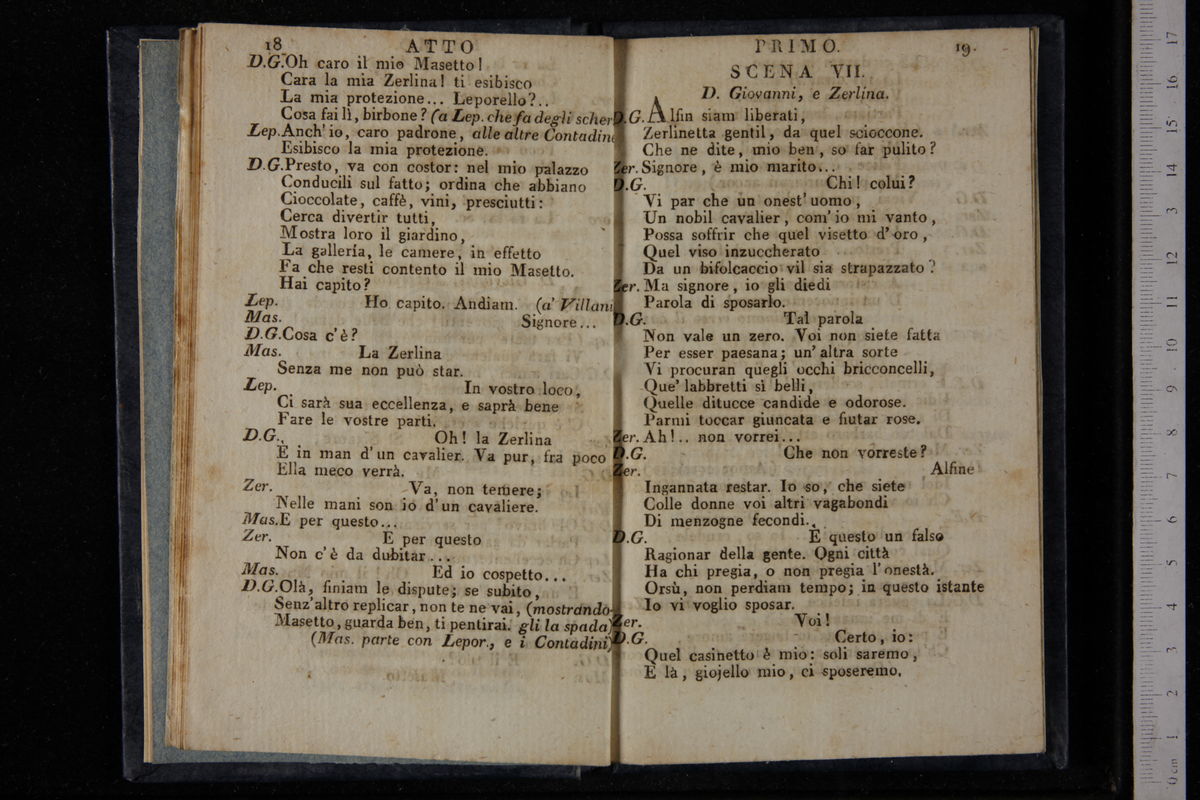 18 ATTO
D.G.Oh caro il mio Masetto!
Cara la mia Zerlina! ti esibisco
La mia protezione... Leporello?..
Cosa fai lì, birbone? (a Lep. che fa degli scher
Lep.Anch'io, caro padrone, alle altre Contadine
Esibisco la mia protezione.
D.G.Presto, va con costor: nel mio palazzo
Conducili sul fatto; ordina che abbiano
Cioccolate, caffè, vini, presciutti:
Cerca divertir tutti,
Mostra loro il giardino,
La gallería, le camere, in effetto
Fa che resti contento il mio Masetto.
Hai capito?
Lep. Ho capito. Andiam. (a' Villani
Mas. Signore...
D.G.Cosa c'è?
Mas. La Zerlina
Senza me non può star.
Lep. In vostro loco,
Ci sarà sua eccellenza, e saprà bene
Fare le vostre parti.
D.G. Oh! la Zerlina
E in man d'un cavalier. Va pur, fra poco
Ella meco verrà.
Zer. Va, non temere;
Nelle mani son io d'un cavaliere.
Mas.E per questo...
Zer. E per questo
Non c'è da dubitar...
Mas. Ed io cospetto...
D.G.Olà, finiam le dispute; se subito,
Senz'altro replicar, non te ne vai, (mostrando-
Masetto, guarda ben, ti pentirai. gli la spada)
(Mas. parte con Lepor., e i Contadini)
PRIMO. 19.
SCENA VII.
D. Giovanni, e Zerlina.
D.G. Alfin siam liberati,
Zerlinetta gentil, da quel scioccone.
Che ne dite, mio ben, so far pulito?
Zer. Signore, è mio marito...
D.G. Chi! colui?
Vi par che un onest'uomo,
Un nobil cavalier, com'io mi vanto,
Possa soffrir che quel visetto d'oro,
Quel viso inzuccherato
Da un bifolcaccio vil sia strapazzato?
Zer. Ma signore, io gli diedi
Parola di sposarlo.
D.G. Tal parola
Non vale un zero. Voi non siete fatta
Per esser paesana; un'altra sorte
Vi procuran quegli occhi bricconcelli,
Que' labbretti sì belli,
Quelle ditucce candide e odorose.
Parmi toccar giuncata e fiutar rose.
Zer. Ah!.. non vorrei...
D.G. Che non vorreste?
Zer. Alfine
Ingannata restar. Io so, che siete
Colle donne voi altri vagabondi
Di menzogne fecondi..
D.G. E questo un falso
Ragionar della gente. Ogni città
Ha chi pregia, o non pregia l'onestà.
Orsù, non perdiam tempo; in questo istante
Io vi voglio sposar.
Zer. Voi!
D.G. Certo, io:
Quel casinetto è mio: soli saremo,
E là, giojello mio, ci sposeremo.
0 cm 1 2 3 4 5 6 7 8 9 10 11 12 13 14 15 16 17